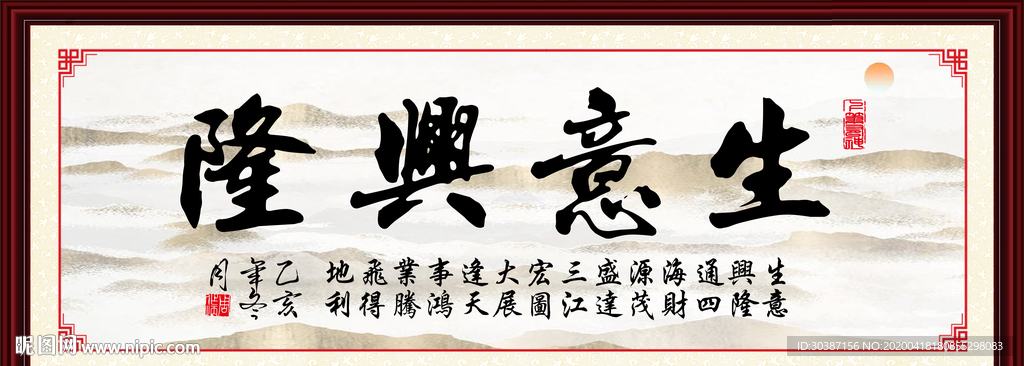 生意興隆
生意
興隆
通四
海財
源茂
盛達
三江
宏圖
大展
逢天
事鴻
業騰
飛得
地利
乙亥
年冬
月
昵图网 www.nipic.com
ID:30387156 NO:20200418180855298083